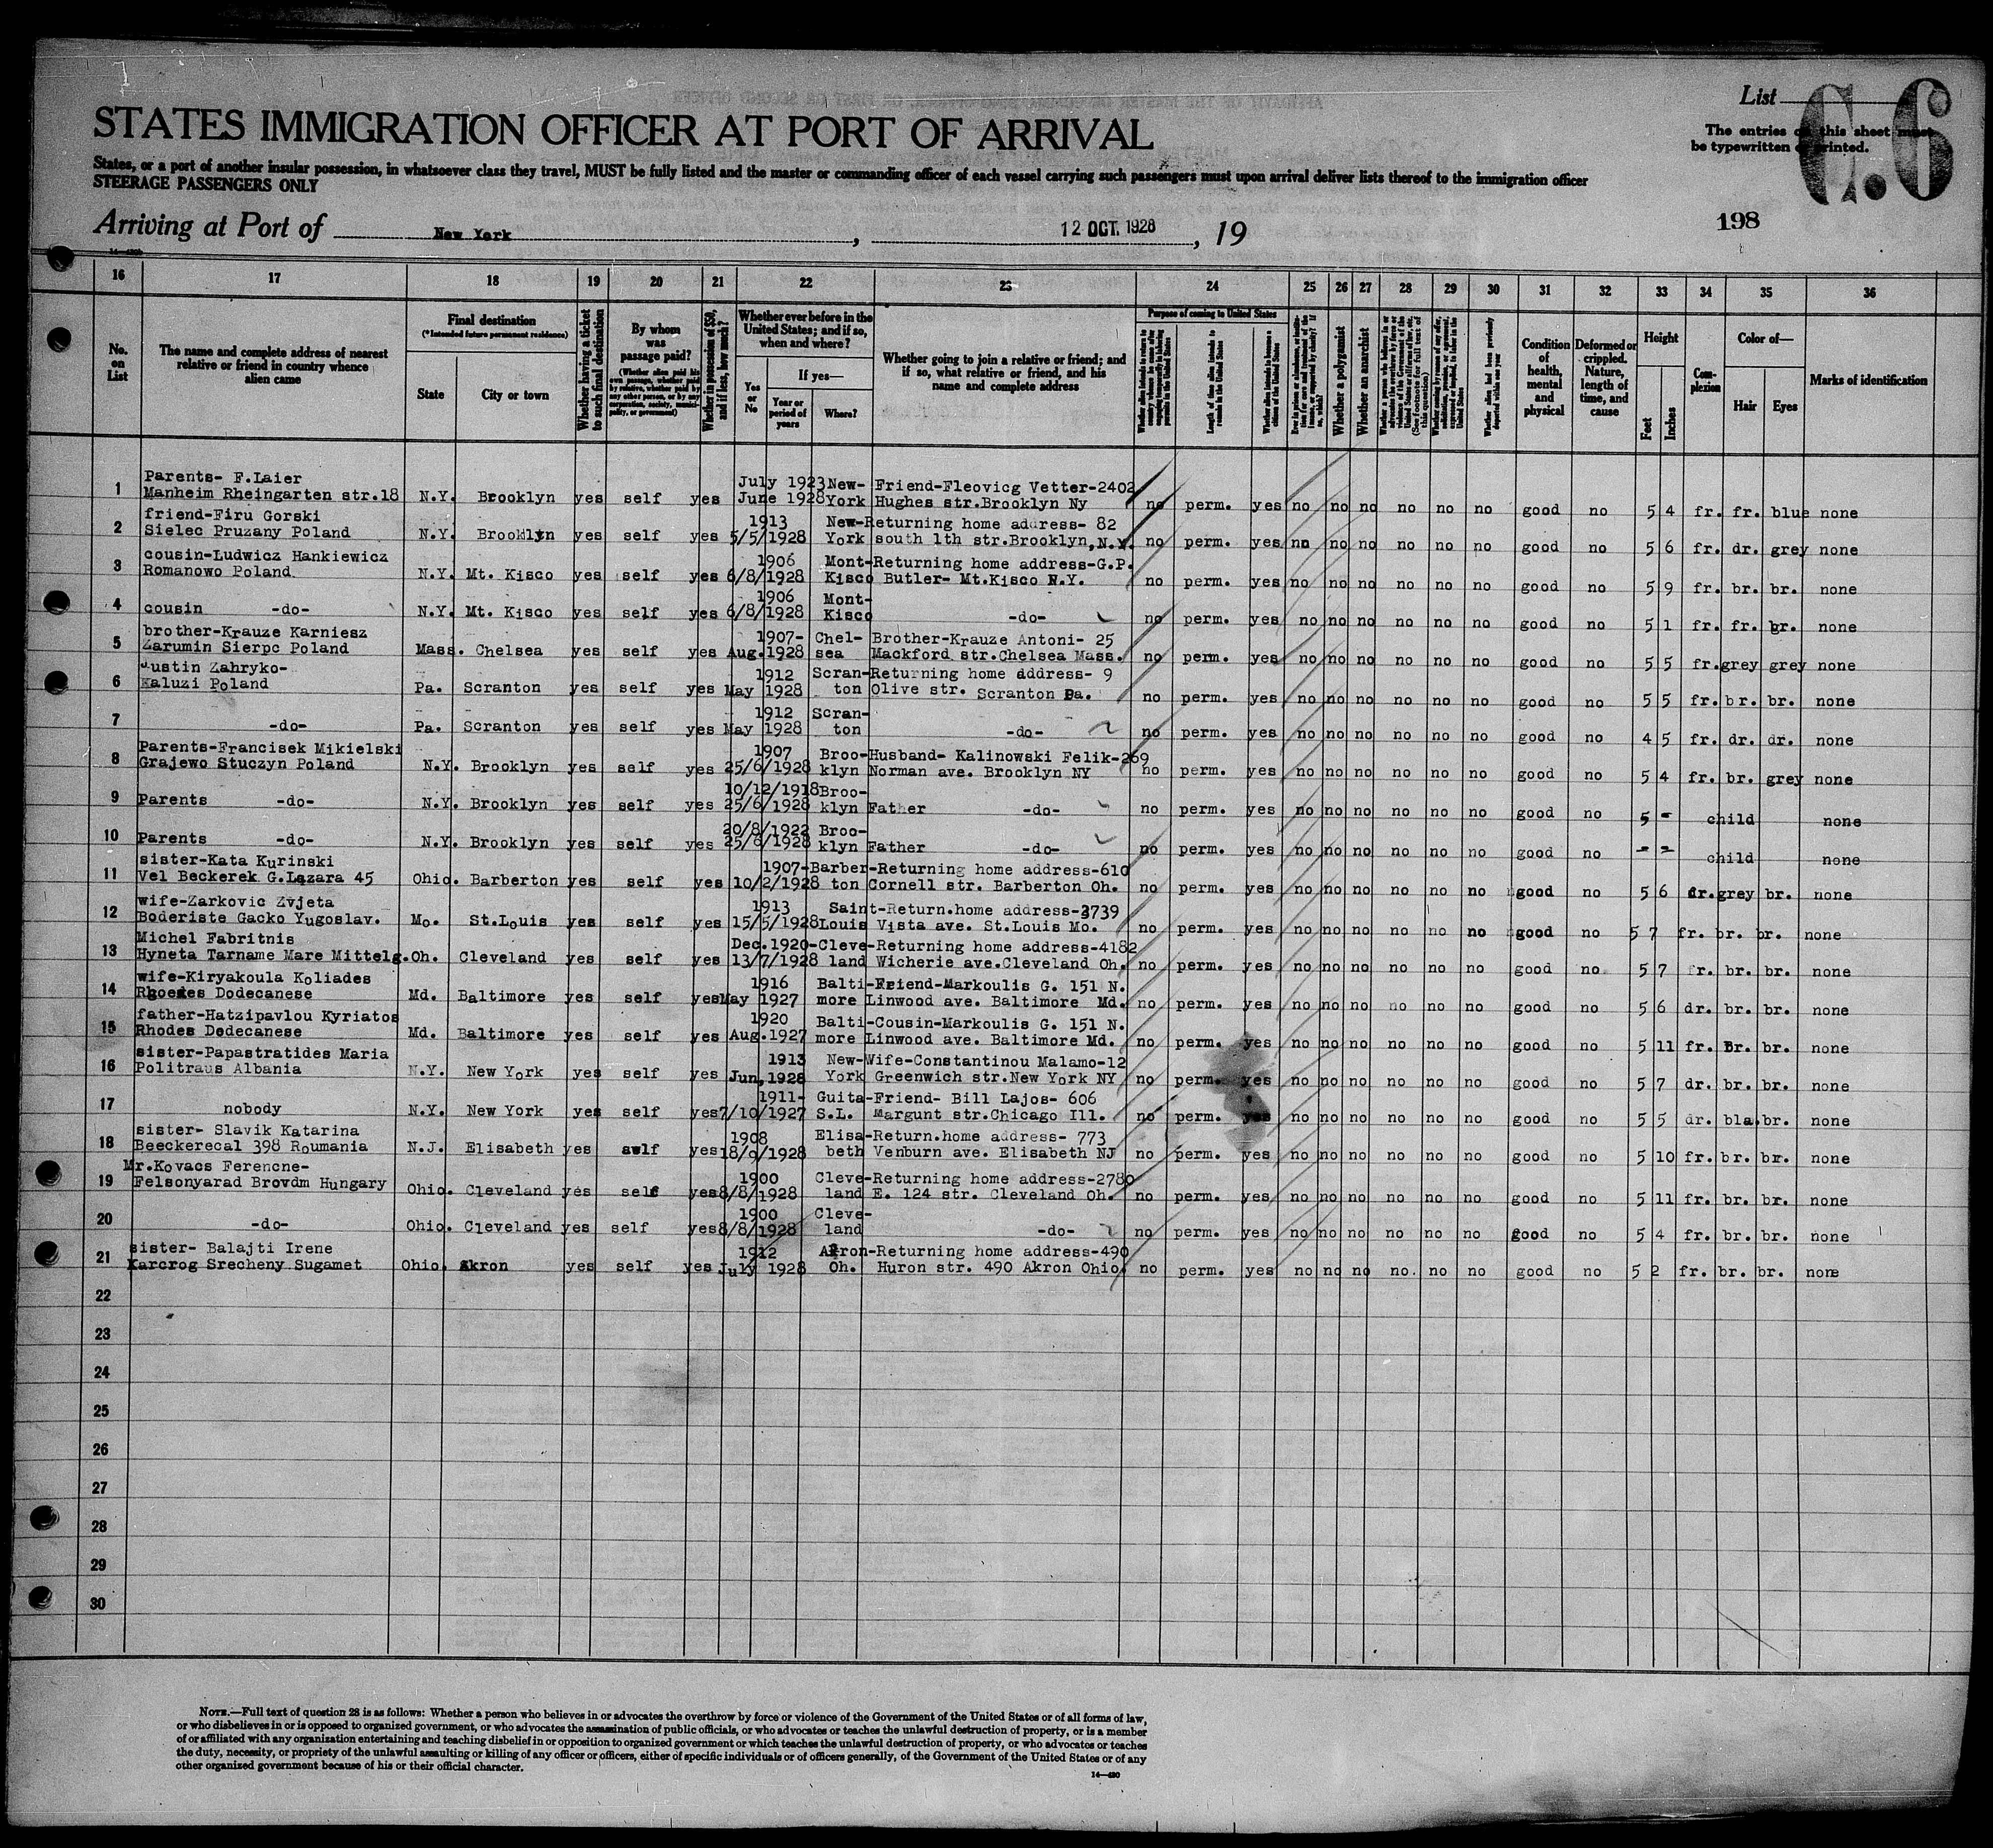 List
C.6
The entries on this sheet must
be typewritten or printed.
STATES IMMIGRATION OFFICER AT PORT OF ARRIVAL
States, or a port of another insular possession, in whatsoever class they travel, MUST be fully listed and the master or commanding officer of each vessel carrying such passengers must upon arrival deliver lists thereof to the immigration officer
STEERAGE PASSENGERS ONLY
198
Arriving at Port of New York, 12 OCT. 1928, 19
16 17 18 19 20 21 22 23 24 25 26 27 28 29 30 31 32 33 34 35 36
No. on List
The name and complete address of nearest relative or friend in country whence alien came
Final destination
(*Intended future permanent residence)
State
City or town
Whether having a ticket to such final destination
By whom was passage paid?
(Whether alien paid his own passage, whether paid by relative, whether paid by any other person, or by any corporation, society, municipality, or government)
Whether in possession of $50, and if less, how much?
Whether ever before in the United States; and if so, when and where?
Yes or No
If yes—
Year or period of years
Where?
Whether going to join a relative or friend; and if so, what relative or friend, and his name and complete address
Purpose of coming to United States
Length of time alien intends to remain in the United States
Whether alien intends to become a citizen of the United States
Whether a polygamist
Whether an anarchist
Condition of health, mental and physical
Deformed or crippled. Nature, length of time, and cause
Height
Feet
Inches
Complexion
Color of—
Hair
Eyes
Marks of identification
1 Parents- F.Laier July 1923 New- Friend-Fleovicg Vetter-2402
Manheim Rheingarten str.18 N.Y. Brooklyn yes self yes June 1928 York Hughes str.Brooklyn Ny no perm. yes no no no no no no good no 5 4 fr. fr. blue none
2 friend-Firu Gorski 1913 New-Returning home address- 82
Sielec Pruzany Poland N.Y. Brooklyn yes self yes 5/5/1928 York south 1th str.Brooklyn,N.Y. no perm. yes no no no no no no good no 5 6 fr. dr. grey none
3 cousin-Ludwicz Hankiewicz 1906 Mont-Returning home address-G.P.
Romanowo Poland N.Y. Mt. Kisco yes self yes 6/8/1928 Kisco Butler- Mt.Kisco N.Y. no perm. yes no no no no no no good no 5 9 fr. br. br. none
4 1906 Mont-
cousin -do- N.Y. Mt. Kisco yes self yes 6/8/1928 Kisco -do- no perm. yes no no no no no no good no 5 1 fr. fr. br. none
5 brother-Krauze Karniesz 1907- Chel- Brother-Krauze Antoni- 25
Zarumin Sierpc Poland Mass. Chelsea yes self yes Aug.1928 sea Mackford str.Chelsea Mass. no perm. yes no no no no no no good no 5 5 fr. grey grey none
6 Justin Zahryko- 1912 Scran-Returning home address- 9
Kaluzi Poland Pa. Scranton yes self yes May 1928 ton Olive str. Scranton Pa. no perm. yes no no no no no no good no 5 5 fr. br. br. none
7 1912 Scran-
-do- Pa. Scranton yes self yes May 1928 ton -do- no perm. yes no no no no no no good no 4 5 fr. dr. dr. none
8 Parents-Francisek Mikielski 1907 Broo-Husband- Kalinowski Felik-269
Grajewo Stuczyn Poland N.Y. Brooklyn yes self yes 25/6/1928 klyn Norman ave. Brooklyn NY no perm. yes no no no no no no good no 5 4 fr. br. grey none
9 10/12/1918 Broo-
Parents -do- N.Y. Brooklyn yes self yes 25/6/1928 klyn Father -do- no perm. yes no no no no no no good no 5 - child none
10 20/8/1922 Broo-
Parents -do- N.Y. Brooklyn yes self yes 25/6/1928 klyn Father -do- no perm. yes no no no no no no good no - - child none
11 sister-Kata Kurinski 1907-Barber-Returning home address-610
Vel Beckerek G.Lazara 45 Ohio. Barberton yes self yes 10/2/1928 ton Cornell str. Barberton Oh. no perm. yes no no no no no no good no 5 6 fr. grey br. none
12 wife-Zarkovic Zvjeta 1913 Saint-Return.home address-3739
Boderiste Gacko Yugoslav. Mo. St.Louis yes self yes 15/5/1928 Louis Vista ave. St.Louis Mo. no perm. yes no no no no no no good no 5 7 fr. br. br. none
13 Michel Fabritnis Dec.1920-Cleve-Returning home address-4182
Hyneta Tarname Mare Mittelg. Oh. Cleveland yes self yes 13/7/1928 land Wicherie ave.Cleveland Oh. no perm. yes no no no no no no good no 5 7 fr. br. br. none
14 wife-Kiryakoula Koliades 1916 Balti-Friend-Markoulis G. 151 N.
Rhoedes Dodecanese Md. Baltimore yes self yes May 1927 more Linwood ave. Baltimore Md. no perm. yes no no no no no no good no 5 6 dr. br. br. none
15 father-Hatzipavlou Kyriatos 1920 Balti-Cousin-Markoulis G. 151 N.
Rhodes Dodecanese Md. Baltimore yes self yes Aug.1927 more Linwood ave. Baltimore Md. no perm. yes no no no no no no good no 5 11 fr. Br. br. none
16 sister-Papastratides Maria 1913 New-Wife-Constantinou Malamo-12
Politraus Albania N.Y. New York yes self yes Jun,1928 York Greenwich str.New York NY no perm. yes no no no no no no good no 5 7 dr. br. br. none
17 1911- Guita-Friend- Bill Lajos- 606
nobody N.Y. New York yes self yes 7/10/1927 S.L. Margunt str.Chicago Ill. no perm. yes no no no no no no good no 5 5 dr. bla. br. none
18 sister- Slavik Katarina 1908 Elisa-Return.home address- 773
Beeckerecal 398 Roumania N.J. Elisabeth yes swlf yes 18/9/1928 beth Venburn ave. Elisabeth NJ no perm. yes no no no no no no good no 5 10 fr. br. br. none
19 Mr.Kovacs Ferencne- 1900 Cleve-Returning home address-2780
Felsonyarad Brovdm Hungary Ohio. Cleveland yes self yes 8/8/1928 land E. 124 str. Cleveland Oh. no perm. yes no no no no no no good no 5 11 fr. br. br. none
20 1900 Cleve-
-do- Ohio. Cleveland yes self yes 8/8/1928 land -do- no perm. yes no no no no no no good no 5 4 fr. br. br. none
21 sister- Balajti Irene 1912 Akron-Returning home address-490
Karcrog Srecheny Sugamet Ohio. Akron yes self yes July 1928 Oh. Huron str. 490 Akron Ohio. no perm. yes no no no no. no no good no 5 2 fr. br. br. none
22
23
24
25
26
27
28
29
30
NOTE.—Full text of question 28 is as follows: Whether a person who believes in or advocates the overthrow by force or violence of the Government of the United States or of all forms of law,
or who disbelieves in or is opposed to organized government, or who advocates the assassination of public officials, or who advocates or teaches the unlawful destruction of property, or is a member
of or affiliated with any organization entertaining and teaching disbelief in or opposition to organized government or which teaches the unlawful destruction of property, or who advocates or teaches
the duty, necessity, or propriety of the unlawful assaulting or killing of any officer or officers, either of specific individuals or of officers generally, of the Government of the United States or of any
other organized government because of his or their official character.
14—430